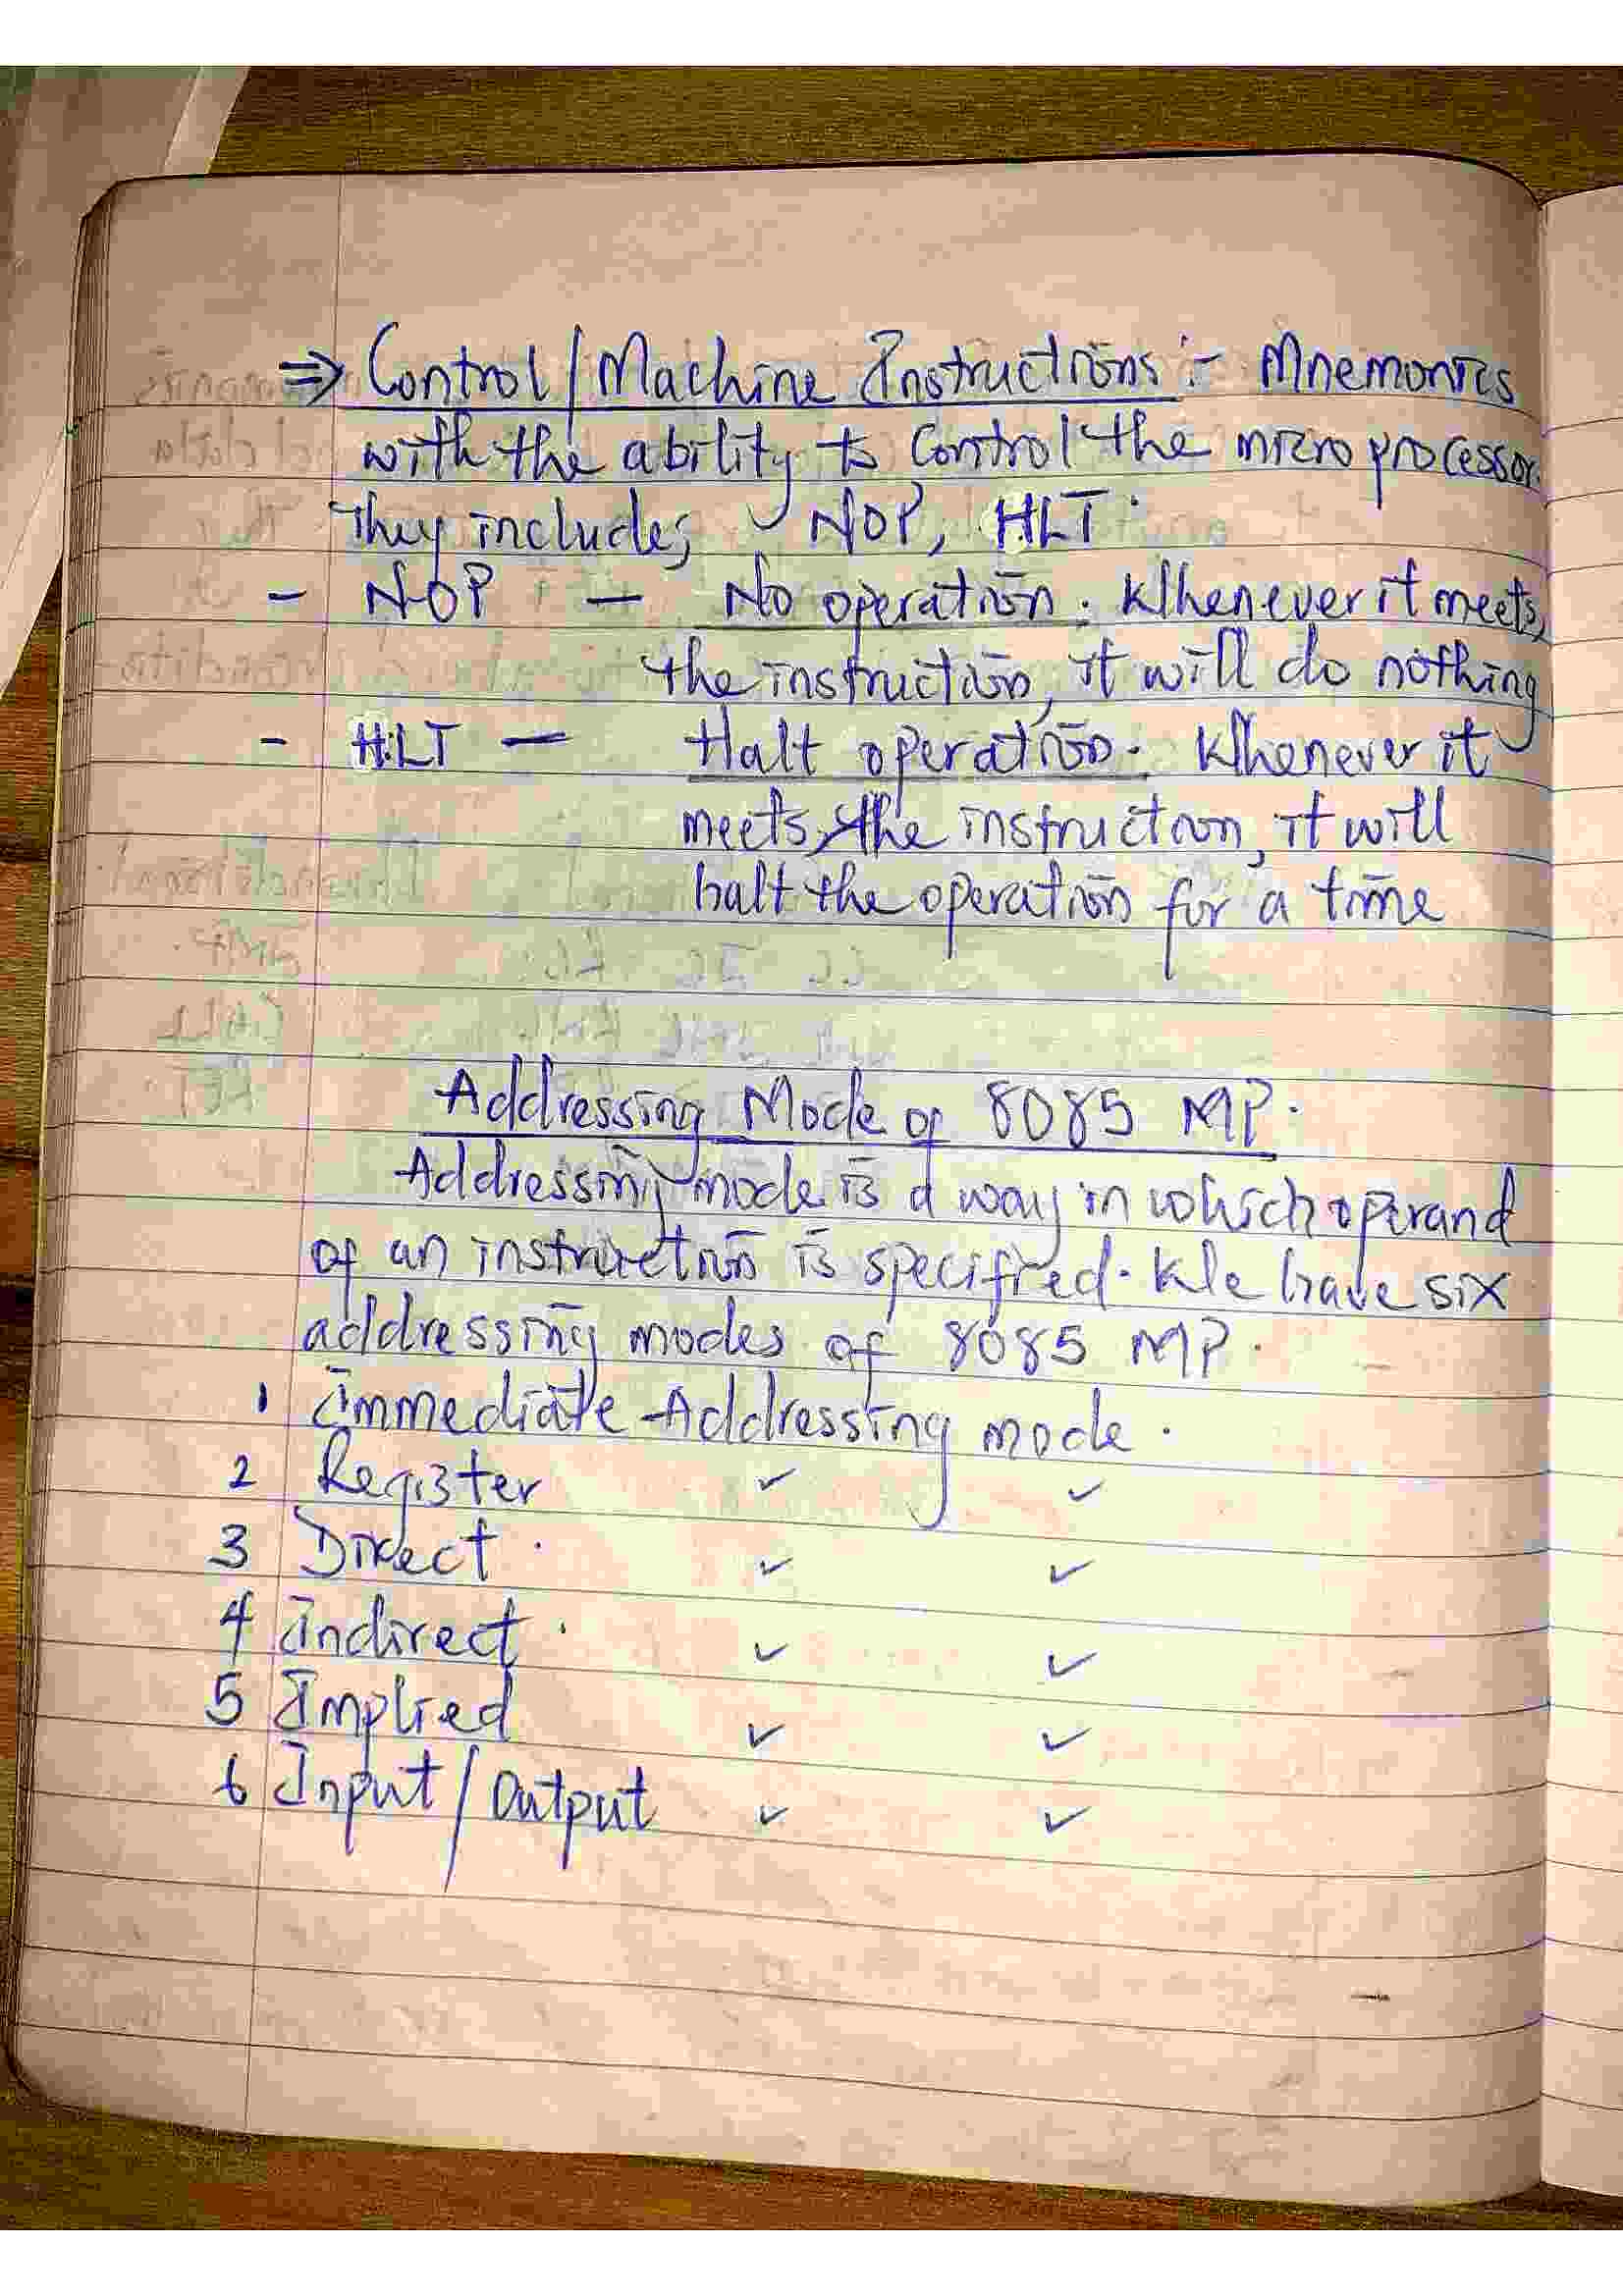 ⇒ Control/Machine Instructions :- Mnemonics
with the ability to control the microprocessor.
They includes NOP, HLT.
- NOP — No operation. Whenever it meets
the instruction, it will do nothing
- HLT — Halt operation. Whenever it
meets the instruction, it will
halt the operation for a time
Addressing Mode of 8085 MP.
Addressing mode is a way in which operand
of an instruction is specified. We have six
addressing modes of 8085 MP.
1 Immediate Addressing mode.
2 Register ✓ ✓
3 Direct. ✓ ✓
4 Indirect. ✓ ✓
5 Implied ✓ ✓
6 Input/Output ✓ ✓